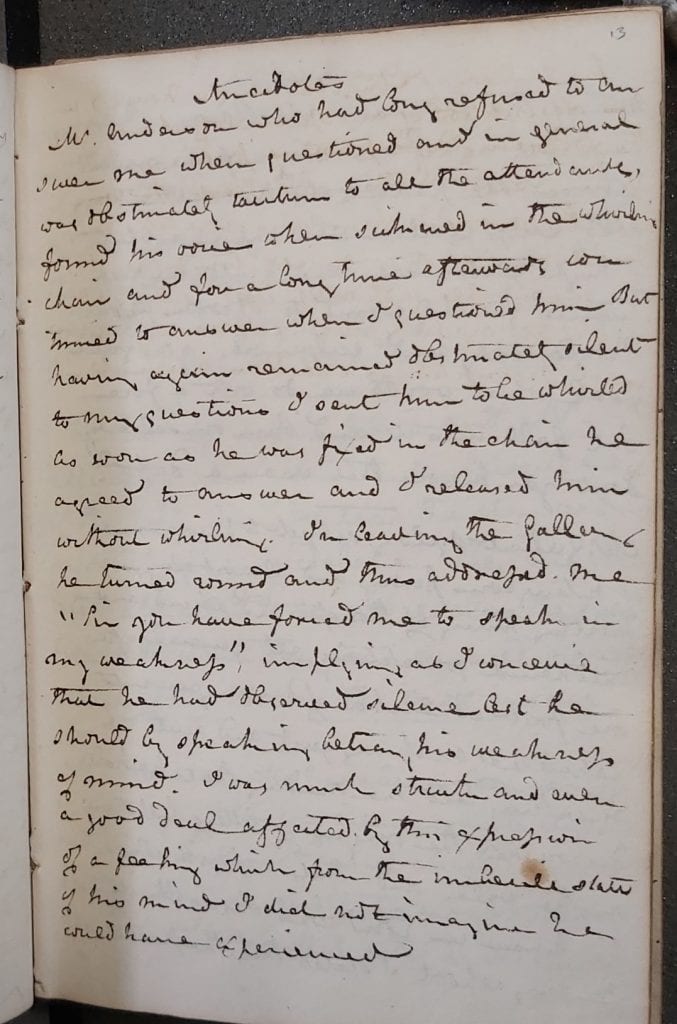 13
Anecdotes
Mr. Anderson who had long refused to an
swer me when questioned and in general
was obstinately taciturn to all the attendants,
found his voice when sickened in the whirling
chair and for a long time afterwards con
tinued to answer when I questioned him But
having again remained obstinately silent
to my questions I sent him to be whirled
as soon as he was fixed in the chair he
agreed to answer and I released him
without whirling. In leaving the Gallery
he turned round and thus addressed me
"Sir you have forced me to speak in
my weakness", implying as I conceive
that he had observed silence lest he
should by speaking betray his weakness
of mind. I was much struck and even
a good deal affected by this expression
of a feeling which from the imbecile state
of his mind I did not imagine he
could have experienced